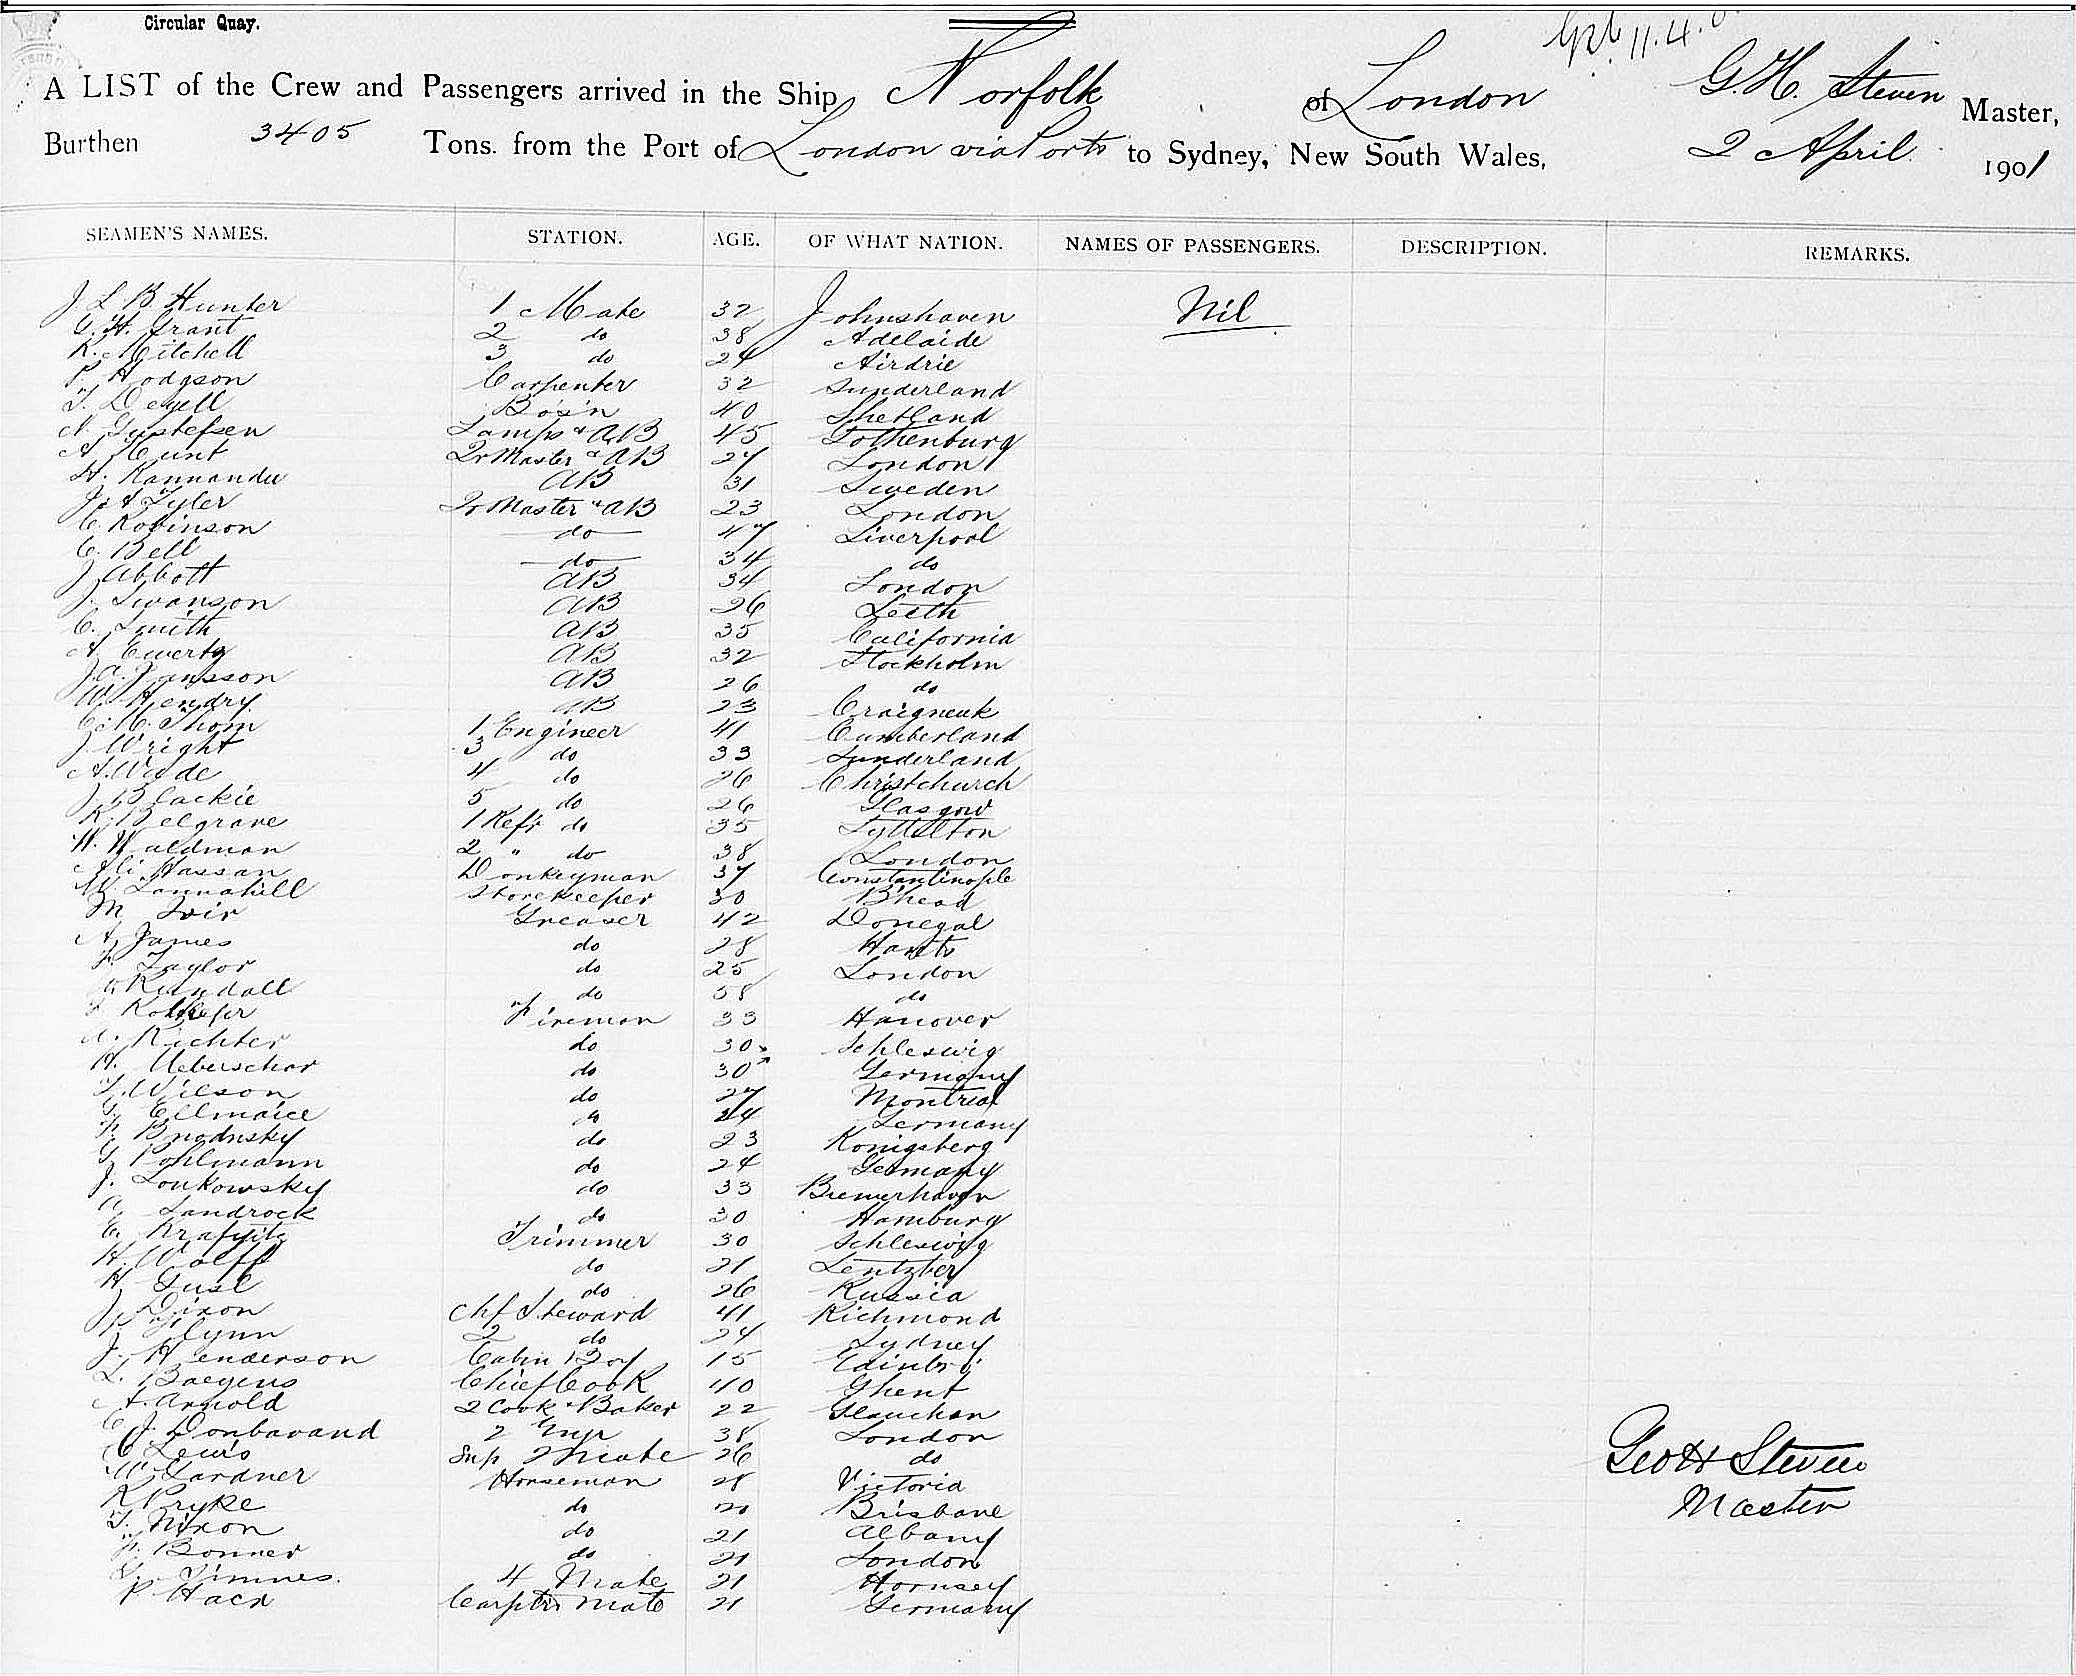 Circular Quay.
11.4.
A LIST of the Crew and Passengers arrived in the Ship Norfolk of London G. H. Steven Master,
Burthen 3405 Tons. from the Port of London via Ports to Sydney, New South Wales, 2 April 1901
SEAMEN'S NAMES. STATION. AGE. OF WHAT NATION. NAMES OF PASSENGERS. DESCRIPTION. REMARKS.
J L B Hunter 1 Mate 32 Johnshaven Nil
G. H. Grant 2 do 38 Adelaide
R. Mitchell 3 do 24 Airdrie
P. Hodgson Carpenter 32 Sunderland
T. Deyell Bos'n 40 Shetland
N. Gustefsen Lamps & AB 45 Gothenburg
A. Hunt Qr Master & AB 27 London
H. Kannander AB 31 Sweden
J. A Tyler Qr Master & AB 23 London
C. Robinson do 47 Liverpool
C. Bell do 34 do
J Abbott AB 34 London
J. Swanson AB 26 Leith
C. Smith AB 35 California
A. Ewertz AB 32 Stockholm
J. A. Jansson AB 26 do
W. Hendry AB 23 Craigneuk
C. M. Thom 1 Engineer 41 Cumberland
J. Wright 3 do 33 Sunderland
A. Wade 4 do 26 Christchurch
J. Blackie 5 do 26 Glasgow
R. Belgrave 1 Refr do 35 Lyttelton
W. Waldman 2 " do 38 London
Ali Hassan Donkeyman 37 Constantinople
W. Tannahill Storekeeper 30 B'head
M Weir Greaser 42 Donegal
A. James do 28 Hants
F. Taylor do 25 London
W Rundall do 58 do
Fireman 33 Hanover
A. Richter do 30 Schleswig
H. Ueberschar do 30 Germany
T. Wilson do 27 Montreal
G. Ellmaice do 24 Germany
F. Brodnsky do 23 Konigsberg
G Pohlmann do 24 Germany
J. Lonkowsky do 33 Bremerhaven
A. Landrock do 30 Hamburg
E. Trimmer 30 Schleswig
H. Wolff do 21
H Gusl do 26 Russia
J. Dixon Chf Steward 41 Richmond
P. Flynn 2 do 24 Sydney
J. Henderson Cabin Boy 15 Edinbro
L. Baeyens Chief Cook 40 Ghent
A. Arnold 2 Cook & Baker 22 Glauchan
C. J. Donbavand 2 Engr 38 London
C Lewis Sup 2 Mate 26 do
W Gardner Horseman 28 Victoria
R Pryke do 20 Brisbane
T. Nixon do 21 Albany
F. Bonner do 21 London
Timnes. 4 Mate 21 Hornsey
P. Hack Carptrs Mate 21 Germany
Geo H Steven
Master